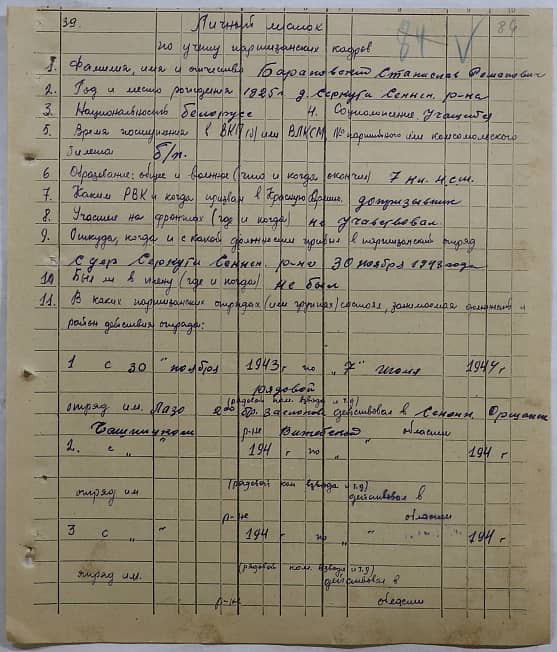 39. Личный листок 84 86
по учету партизанских кадров
1. Фамилия, имя и отчество Барановский Станислав Романович
2. Год и место рождения 1925 г д. Серкути Сеннен. р-на
3. Национальность белорусс 4. Соцположение. Учащийся
5. Время поступления в ВКП(б) или ВЛКСМ, № партийного или комсомольского
билета б/п.
6 Образование: общее и военное (что и когда окончил) 7 кл. н.с.ш.
7 Каким РВК и когда призван в Красную Армию. допризывник
8. Участие на фронтах (где и когда) не учавствовал
9. Откуда, когда и с какой должности прибыл в партизанский отряд
с дер Серкути Сеннен. р-на 30 ноября 1943 года
10 Был ли в плену (где и когда) не был
11. В каких партизанских отрядах (или группах) состоял, занимаемая должность и
район действия отряда:
1 с 30 " ноября 1943 г по "7" июля 1944 г
рядовой
(рядовой ком. взвода и т.д)
отряд им. Лазо 2ой бр. Заслонова действовал в Сеннен. Оршанск
Чашникском р-не Витебской области
2. с " " 194 г по " " 194 г
(рядовой ком взвода и т.д)
отряд им действовал в
р-не области
3 с " " 194 г по " " 194 г
(рядовой ком. взвода и т.д)
отряд им. действовал в
р-не области